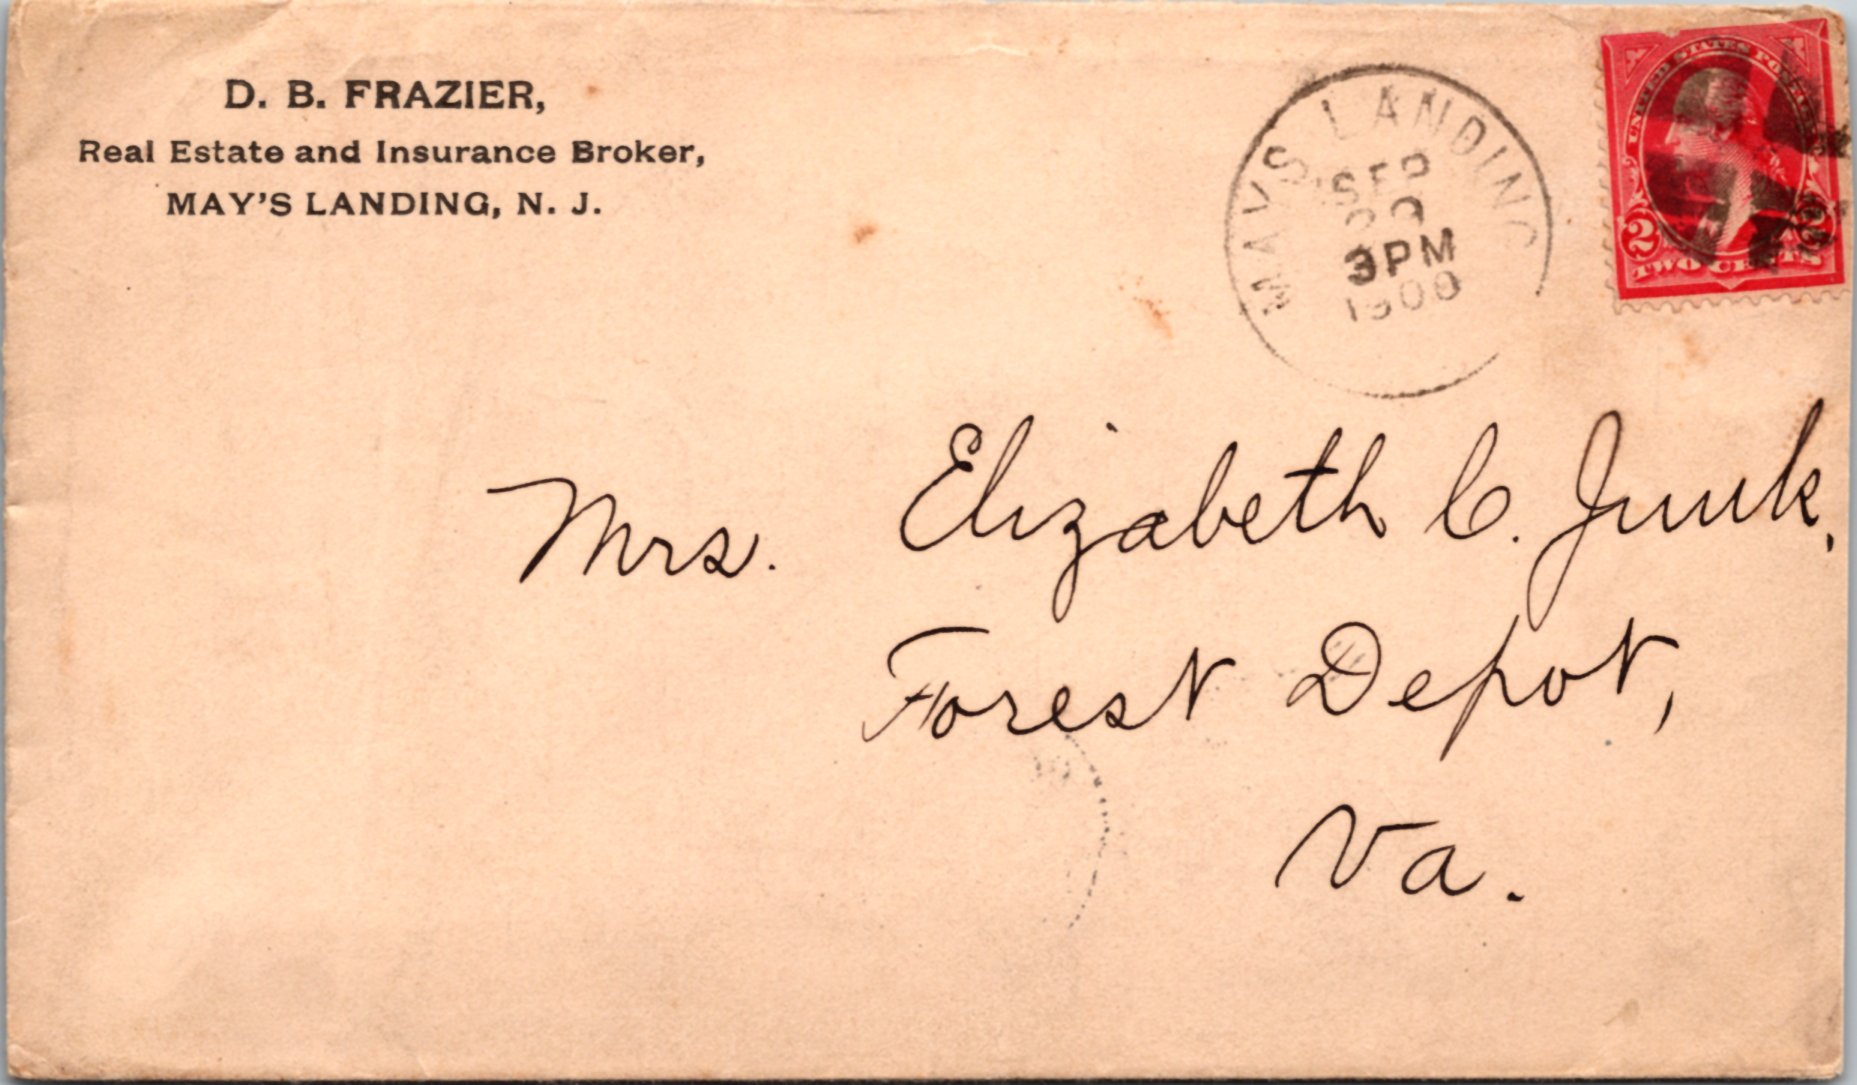 D. B. FRAZIER,
Real Estate and Insurance Broker,
MAY'S LANDING, N. J.
MAYS LANDING
SEP
3 PM
1900
UNITED STATES POSTAGE
2 2
TWO CENTS
Mrs. Elizabeth C. Junk,
Forest Depot,
Va.